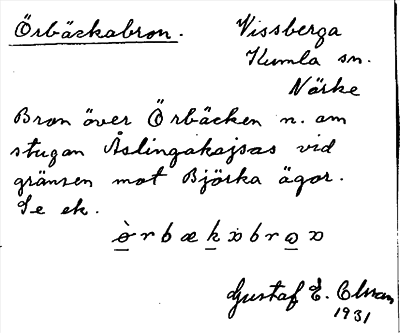 Örbäckabron. Vissberga
Kumla sn.
Närke
Bron över Örbäcken n. om
stugan Åslingakajsas vid
gränsen mot Björka ägor.
Se ek.
Gustaf E. Olsson
1931